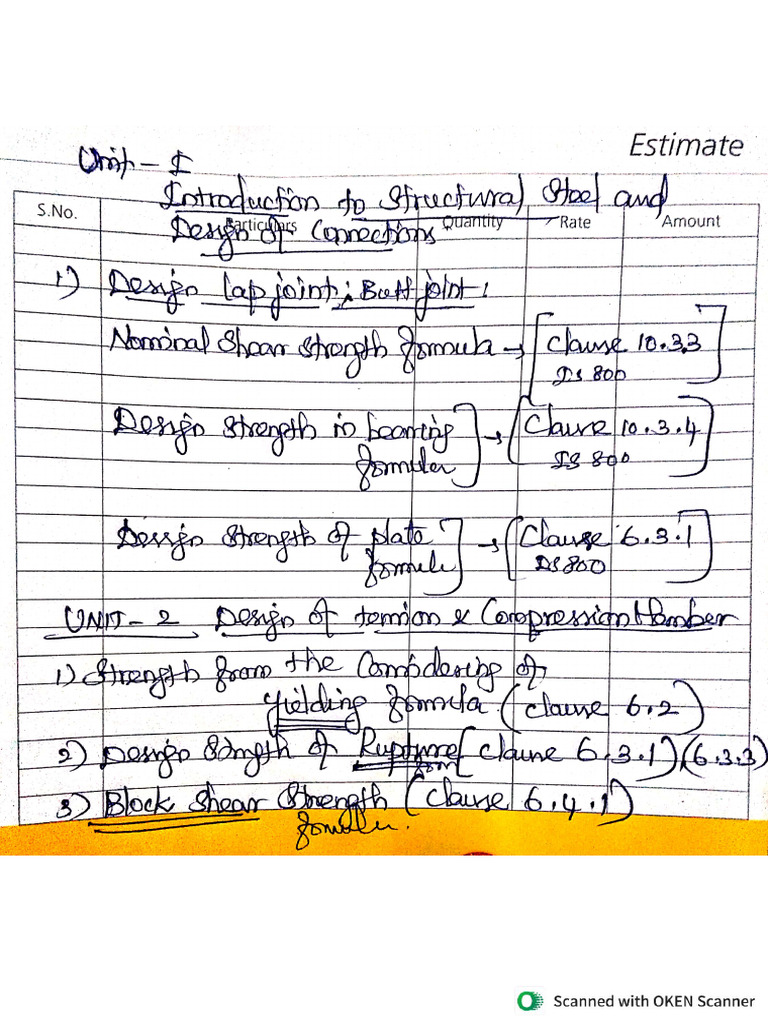 Estimate
Unit - I
Introduction to Structural Steel and
S.No. Particulars Quantity Rate Amount
Design of Connections
1) Design Lap joint; Butt joint:
Nominal Shear Strength formula → [Clause 10.3.3
IS 800]
Design Strength in bearing → [Clause 10.3.4
formula IS 800]
Design Strength of plate → [Clause 6.3.1
formula IS 800]
UNIT - 2 Design of tension & Compression Member
1) Strength from the Considering of
Yielding formula (clause 6.2)
2) Design Strength of Rupture (clause 6.3.1) (6.3.3)
form
3) Block Shear Strength (clause 6.4.1)
formula.
Scanned with OKEN Scanner